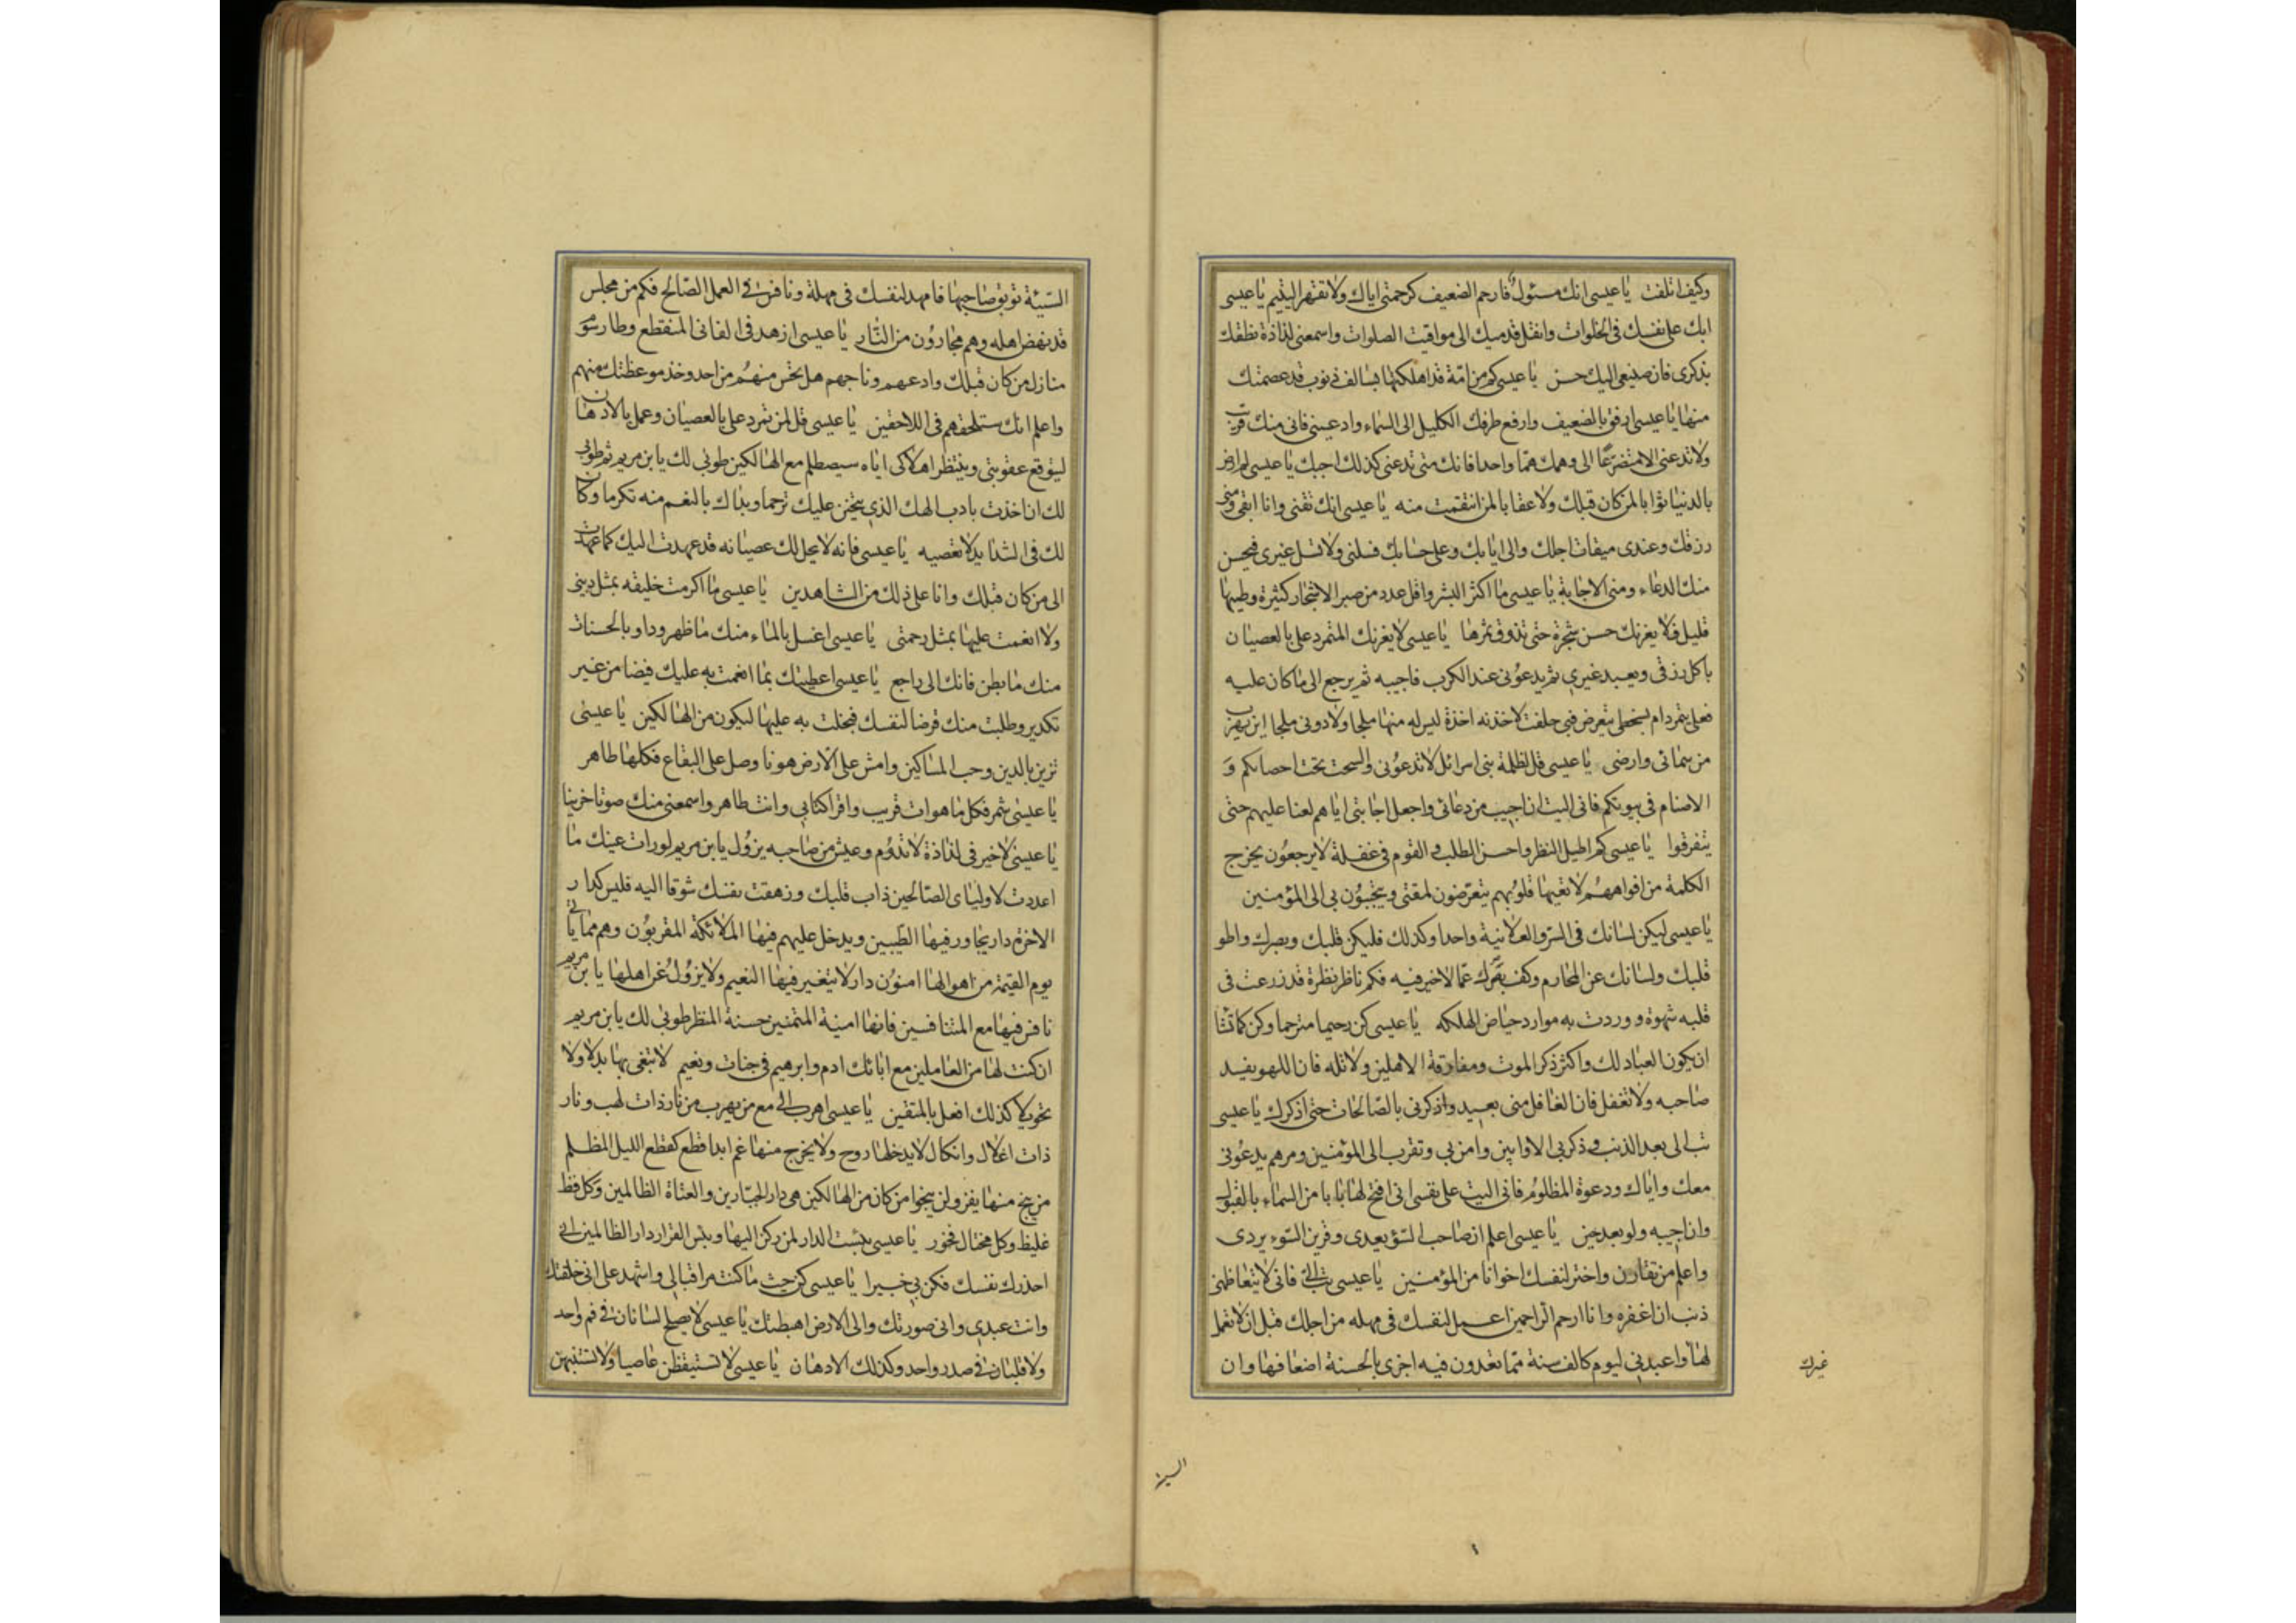 وكيف اتلفت يا عيسى انك مسئول فارحم الضعيف كرحمتي اياك ولا تقهر اليتيم يا عيسى
ابك على نفسك في الخلوات وانقل قدميك الى مواقيت الصلوات واسمعني لذاذة نطقك
بذكرى فان صنيعى اليك حسن يا عيسى كم من امّة قد اهلكتها بسالف ذنوب قد عصمتك
منها يا عيسى ارفق بالضعيف وارفع طرفك الكليل الى السماء وادعينى فانى منك قريب
ولا تدعنى الا متضرعًا الى وهمك همّا واحدا فانك متى تدعنى كذلك اجبك يا عيسى لم ارض
بالدنيا ثوابا لمن كان قبلك ولا عقابا لمن انتقمت منه يا عيسى انك تفنى وانا ابقى ومنى
رزقك وعندى ميقات اجلك والى ايابك وعلى حسابك فسلنى ولا تسل غيرى فيحسن
منك الدعاء ومنى الاجابة يا عيسى ما اكثر البشر واقل عدد من صبر الاشجار كثيرة وطيبها
قليل فلا يغرنك حسن شجرة حتى تذوق ثمرها يا عيسى لا يغرنك المتمرد على بالعصيان
ياكل رزقى ويعبد غيرى ثم يدعونى عند الكرب فاجيبه ثم يرجع الى ما كان عليه
فعلى يتمرد ام بسخطى يتعرض فبى حلفت لاخذنه اخذة ليس له منها ملجا ولا دونى ملجا اين يهرب
من سمائى وارضى يا عيسى قل لظلمة بنى اسرائل لا تدعونى والسحت تحت احصانكم و
الاصنام فى بيوتكم فانى اليت ان اجيب من دعانى واجعل اجابتى اياهم لعنا عليهم حتى
يتفرقوا يا عيسى كم اطيل النظر واحسن الطلب والقوم فى غفلة لا يرجعون يخرج
الكلمة من افواههم لا تعيها قلوبهم يتعرضون لمقتى ويتحببون بى الى المؤمنين
يا عيسى ليكن لسانك فى السر والعلانية واحدا وكذلك فليكن قلبك وبصرك واطو
قلبك ولسانك عن المحارم وكف بصرك عمّا لا خير فيه فكم ناظر نظرة قد زرعت فى
قلبه شهوة ووردت به موارد حياض الهلكه يا عيسى كن رحيما مترحما وكن كما تشا
ان يكون العباد لك واكثر ذكر الموت ومفارقة الاهلين ولا تله فان اللهو يفسد
صاحبه ولا تغفل فان الغافل منى بعيد واذكرنى بالصالحات حتى اذكرك يا عيسى
تب الى بعد الذنب وذكر بى الاوابين وامن بى وتقرب الى المؤمنين ومرهم يدعونى
معك واياك ودعوة المظلوم فانى اليت على نفسى انى افتح لها بابا من السماء بالقبول
وان اجيبه ولو بعد حين يا عيسى اعلم ان صاحب السوء يعدى وقرين السوء يردى
واعلم من تقارن واختر لنفسك اخوانا من المؤمنين يا عيسى تب الىّ فانى لا يتعاظمنى
ذنب ان اغفره وانا ارحم الراحمين اعمل لنفسك فى مهله من اجلك قبل ان لا تعمل
لها واعبدنى ليوم كالف سنة مما تعدون فيه اجزى بالحسنة اضعافها وان
غيرك
السيئة
السّيئة توبق صاحبها فامهد لنفسك فى مهلة ونافس فى العمل الصّالح فكم من مجلس
قد نهض اهله وهم مجارون من النّار يا عيسى ازهد فى الفانى المنقطع وطا رسوم
منازل من كان قبلك وادعهم وناجهم هل تحس منهم من احد وخذ موعظتك منهم
واعلم انك ستلحقهم فى اللاحقين يا عيسى قل لمن تمرد على بالعصيان وعمل بالادهان
ليتوقع عقوبتى وينتظر اهلاكى اياه سيصطلم مع الهالكين طوبى لك يابن مريم ثم طوبى
لك ان اخذت بادب الهك الذى يتحنن عليك ترحما وبداك بالنعم منه تكرما وكان
لك فى الشدايد لا تعصيه يا عيسى فانه لا يحل لك عصيانه قد عهدت اليك كما عهدت
الى من كان قبلك وانا على ذلك من الشاهدين يا عيسى ما اكرمت خليقه بمثل دينى
ولا انعمت عليها بمثل رحمتى يا عيسى اغسل بالماء منك ما ظهر وداو بالحسنات
منك ما بطن فانك الى راجع يا عيسى اعطيتك بما انعمت به عليك فيضا من غير
تكدير وطلبت منك قرضا لنفسك فبخلت به عليها لتكون من الهالكين يا عيسى
تزين بالدين وحب المساكين وامش على الارض هونا وصل على البقاع فكلها طاهر
يا عيسى شمر فكل ما هو ات قريب واقرا كتابى وانت طاهر واسمعنى منك صوتا حزينا
يا عيسى لا خير فى لذاذة لا تدوم وعيش من صاحبه يزول يابن مريم لو رات عينك ما
اعددت لاوليائى الصّالحين ذاب قلبك وزهقت نفسك شوقا اليه فليس كدار
الاخرة دار يجاور فيها الطّيبين ويدخل عليهم فيها الملائكة المقربون وهم مما ياتى
يوم القيمة من اهوالها امنون دار لا يتغير فيها النعيم ولا يزول عن اهلها يا بن مريم
نافس فيها مع المتنافسين فانها امنية المتمنين حسنة المنظر طوبى لك يابن مريم
ان كنت لها من العاملين مع ابائك ادم وابرهيم فى جنات ونعيم لا تبغى بها بدلا ولا
تحويلا كذلك افعل بالمتقين يا عيسى اهرب الى مع من يهرب من نار ذات لهب ونار
ذات اغلال وانكال لا يدخلها روح ولا يخرج منها غم ابدا قطع كقطع الليل المظلم
من ينج منها يفز ولن ينجوا من كان من الهالكين هى دار الجبّارين والعتاة الظالمين وكل فظ
غليظ وكل مختال فخور يا عيسى بئست الدار لمن ركن اليها وبئس القرار دار الظالمين انى
احذرك نفسك فكن بى خبيرا يا عيسى كن حيث ما كنت مراقبا لى واشهد على انى خلقتك
وانت عبدى وانى صورتك والى الارض اهبطتك يا عيسى لا يصلح لسانان فى فم واحد
ولا قلبان فى صدر واحد وكذلك الادهان يا عيسى لا تستيقظن عاصيا ولا تستنبهن